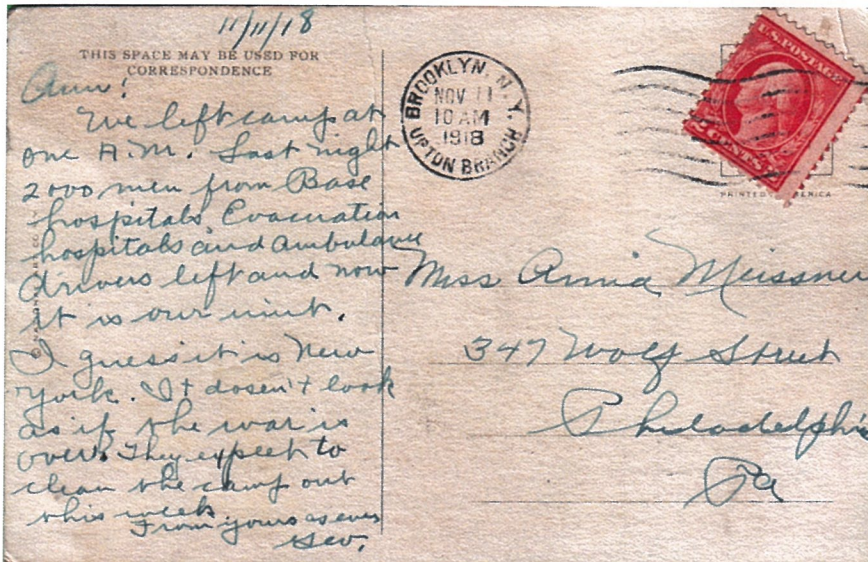 11/11/18
THIS SPACE MAY BE USED FOR
CORRESPONDENCE
Ann!
We left camp at
one A.M. Last night
2000 men from Base
hospitals, Evacuation
hospitals and ambulance
drivers left and now
it is our unit.
I guess it is New
York. It dosen't look
as if the war is
over. They expect to
clean the camp out
this week.
From yours as ever
Geo.
BROOKLYN, N.Y.
NOV 11
10 AM
1918
UPTON BRANCH
U.S. POSTAGE
2 CENTS 2
PRINTED IN AMERICA
Miss Anna Meissner
347 Wolf Street
Philadelphia
Pa